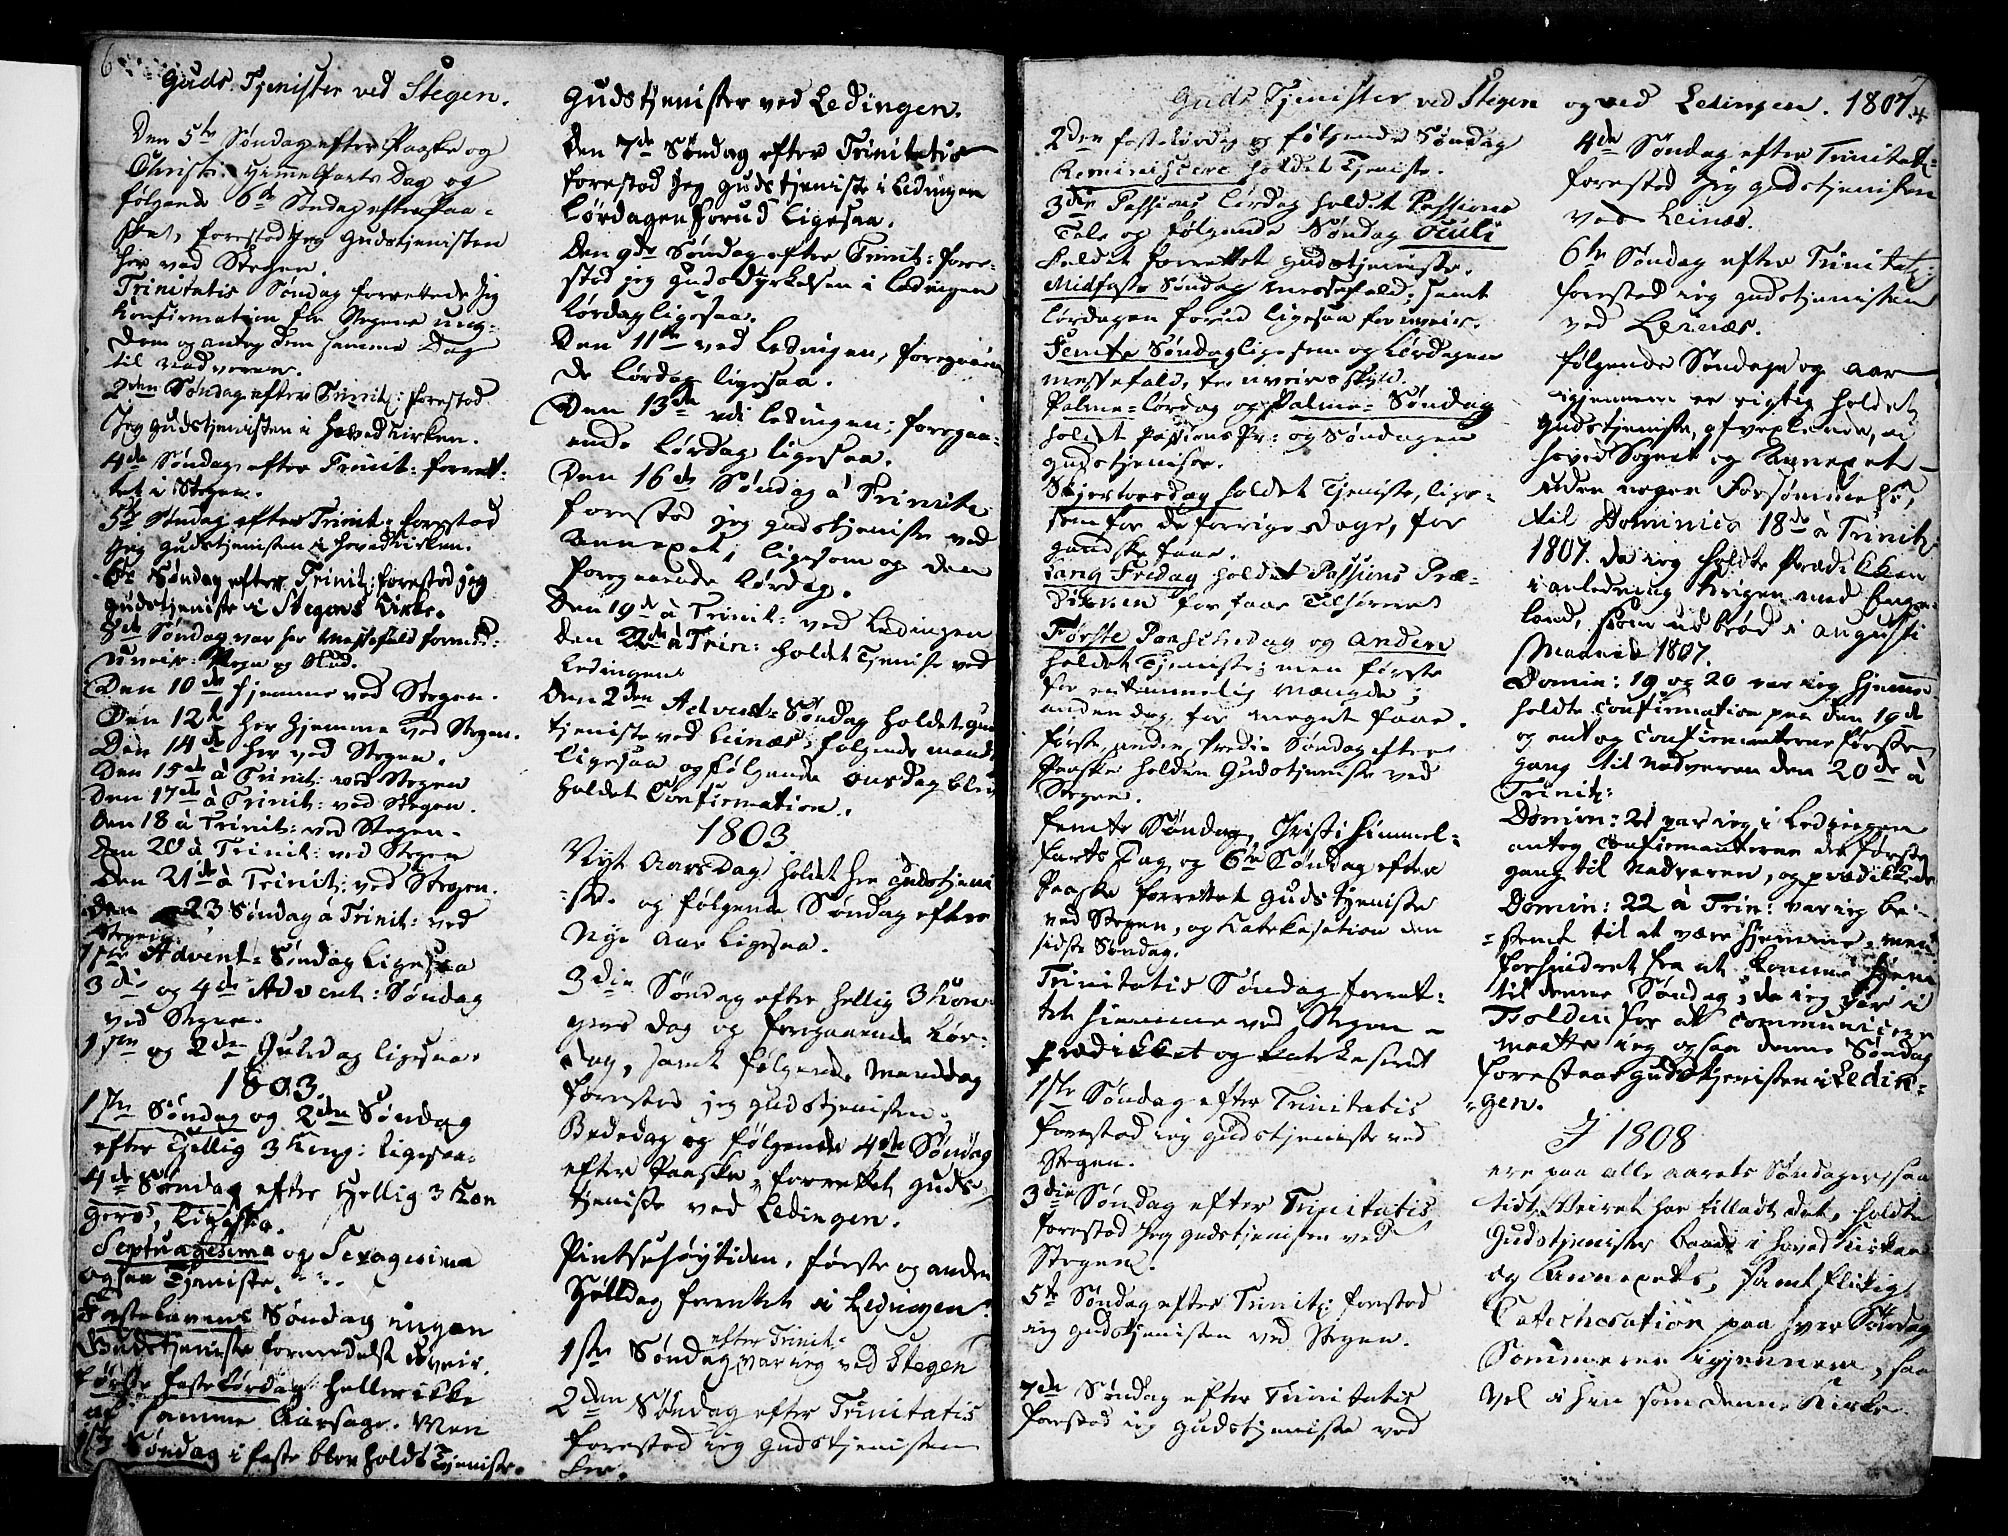 6
Guds Tjenister ved Stegen.
Den 5te Søndag efter Paaske og
Christi Himelfarts Dag og
følgende 6te Søndag efter Paa-
sket, forestod Jeg Gudstjenisten
her ved Stegen.
Trinitatis Søndag forrettede Jeg
Confirmation for Stegens ung-
dom og antog dem samme Dag
til Nadveren.
2den Søndag efter Trinit: forestod
Jeg Gudstjenisten i Hovedkirken.
4de Søndag efter Trinit: forret-
tet i Stegen.
5te Søndag efter Trinit: forestod
Jeg Gudstjenisten i Hovedkirken.
6te Søndag efter Trinit: forestod jeg
Gudstjeniste i Stegens Kirke.
8de Søndag var her Messefald formed:
Uveir: Regn og Slud.
Den 10de hjemme ved Stegen.
Den 12te her hjemme ved Stegen.
Den 14de her ved Stegen.
Den 15de à Trinit: ved Stegen
Den 17de à Trinit: ved Stegen.
Den 18 à Trinit: ved Stegen.
Den 20 à Trinit: ved Stegen
Den 21de à Trinit: ved Stegen.
Den 23 Søndag à Trinit: ved
Stegen.
1ste Advent: Søndag ligesaa
3die og 4de Advent: Søndag
ved Stegen.
1ste og 2den Juledag ligesaa.
1803.
1ste Søndag og 2den Søndag
efter Hellig 3 Kong: ligesaa.
4de Søndag efter Hellig 3 Kon
gers, ligesaa.
Septuagesima og Sexagesima
ogsaa Tjeniste.
Fastelavens Søndag ingen
Gudstjeniste formedelst Uveir.
Første faste Lørdag heller ikke
af samme Aarsage. Men
1ste Søndag i faste blev holdt Tjeniste.
Gudstjenister ved Ledingen.
Den 7de Søndag efter Trinitatis
forestod Jeg Gudstjeniste i Ledingen
Lørdagen forud ligesaa.
Den 9de Søndag efter Trinit: fore-
stod jeg Gudsdyrkelsen i Ledingen
Lørdag ligesaa.
Den 11te ved Ledingen, foregaaen
de Lørdag ligesaa.
Den 13de udi Ledingen: foregaa-
ende Lørdag ligesaa.
Den 16de Søndag à Trinit:
forestod jeg Gudstjeniste ved
Annexet, ligesom og den
foregaaende Lørdag.
Den 19de à Trinit: ved Ledingen
Den 22de à Trin: holdet Tjeniste ved
Ledingen
Den 2den Advent-Søndag holdet Gud
tjeniste ved Leinæs, følgende mand
ligesaa og følgende onsdag blev
holdet Confirmation.
1803
Nyt Aars Dag holdet her Gudstjeni
ste. og følgende Søndag efter
Nye Aar ligesaa.
3die Søndag efter Hellig 3 Kon
gers dag og foregaaende Lør-
dag, samt følgende Manddag
forestod jeg Gudstjenisten.
Bededag og følgende 4de Søndag
efter Paaske, forrettet Guds
tjeniste ved Ledingen.
Pintsehøytiden, første og anden
Helldag forrettet i Ledingen.
efter Trinit:
1ste Søndag var ieg ved Stegen
2den Søndag efter Trinitatis
forestod ieg Gudstjenisten
her.
7
Guds Tjenister ved Stegen og ved Ledingen. 1807.
2den faste Lørdag og følgende Søndag
Reminiscere holdet Tjeniste.
3die Passions Lørdag holdet Passions
Tale og følgende Søndag Oculi
holdet forrettet Gudstjeniste.
Midfaste Søndag Messefald; samt
Lørdagen forud ligesaa for uveir.
Femte Søndag ligesom og Lørdagen
messefald, for uveirs skyld.
Palme-Lørdag og Palme-Søndag
holdet Passions Pr: og Søndagen
Gudstjeniste.
Skjertorsdag holdet Tjeniste, lige-
som for de forrige Dage, for
gandske faae.
Lang Fredag holdet Passions Præ-
diken for faae Tilhørere
Første Paaskedag og Anden
holdet Tjeniste; men første
for en temmelig mængde;
anden dag for meget faae.
Første, anden, tredie Søndag efter
Paaske holden Gudstjeniste ved
Stegen.
Femte Søndag, Christi Himmel-
farts Dag og 6te Søndag efter
Paaske forrettet Guds tjeniste
ved Stegen, og Katekisation den
sidste Søndag.
Trinitatis Søndag forret-
tet hiemme ved Stegen -
prædikket og katekiseret
1ste Søndag efter Trinitatis
forestod ieg Gudstjeniste ved
Stegen.
3die Søndag efter Trinitatis
forestod Jeg Gudstjenisten ved
Stegen.
5te Søndag efter Trinit: forestod
ieg Gudstjenisten ved Stegen.
7de Søndag efter Trinitatis
forestod ieg Gudstjeniste ved
4de Søndag efter Trinitat:
forestod Jeg Gudstjenisten
ved Leinæs.
6te Søndag efter Trinitat:
forestod ieg Gudstjenisten
ved Leinæs.
Følgende Søndage og Aar
igjennem er rigtig holdet
Gudstjeniste, afvexlende, i
Hoved Sognet og Annexet -
uden nogen Forsømmelse,
til Dominica 18de à Trinit:
1807. da ieg holdte Prædikken
i anledning Krigen med Enge-
land, som udbrød i Augusti
Maaned 1807.
Domin: 19 og 20 var ieg hjemme
holdte Confirmation paa den 19de
og antog Confirmanterne første
gang til Nadveren den 20de à
Trinit:
Domin: 21 var ieg i Ledingen
antog Confirmanterne der første
gang til Nadveren, og prædikkede
Domin: 22 à Trin: var ieg be-
stemt til at være hjemme, men
forhindret fra at komme hjem
til denne Søndag; da ieg var i
Folden for at communicere
maatte ieg ogsaa denne Søndag
forestaae Gudstjenisten i Ledin-
gen.
I 1808
ere paa alle aarets Søndager, saa
tidt Veiret har tilladt det, holdte
Gudstjenister baade i Hoved Kirken
og Annexets, samt flitig
Catechesation paa hver Søndag
Sommeren igjennem, saa
vel i hin som denne Kirke.